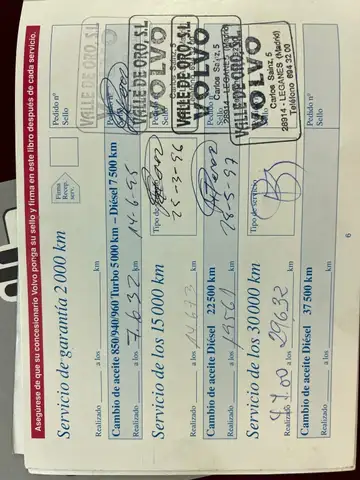 Asegúrese de que su concesionario Volvo ponga su sello y firma en este libro después de cada servicio.
Servicio de garantía 2 000 km
Realizado a los km
Firma Recep. serv.
Pedido nº
Sello
Cambio de aceite 850/940/960 Turbo 5 000 km – Diésel 7 500 km
14-6-95
7.632
Realizado a los km
VALLE DE ORO, S.L
VOLVO
Servicio de los 15 000 km
Realizado a los 14.673 km
Tipo de
25-3-96
Pedido nº
Sello
VALLE DE ORO, S.L
VOLVO
Carlos Sainz, 5
Cambio de aceite Diésel 22 500 km
Realizado a los km
28-5-97
VALLE DE ORO, S.L
VOLVO
Carlos Sainz, 5
28914 - LEGANES (Madrid)
Servicio de los 30 000 km
Realizado a los 29,632 km
Tipo de servicio
Pedido nº
Sello
VALLE DE ORO, S.L
VOLVO
Carlos Sainz, 5
28914 - LEGANES (Madrid)
Teléfono 694 32 00
Cambio de aceite Diésel 37 500 km
Realizado a los km
6